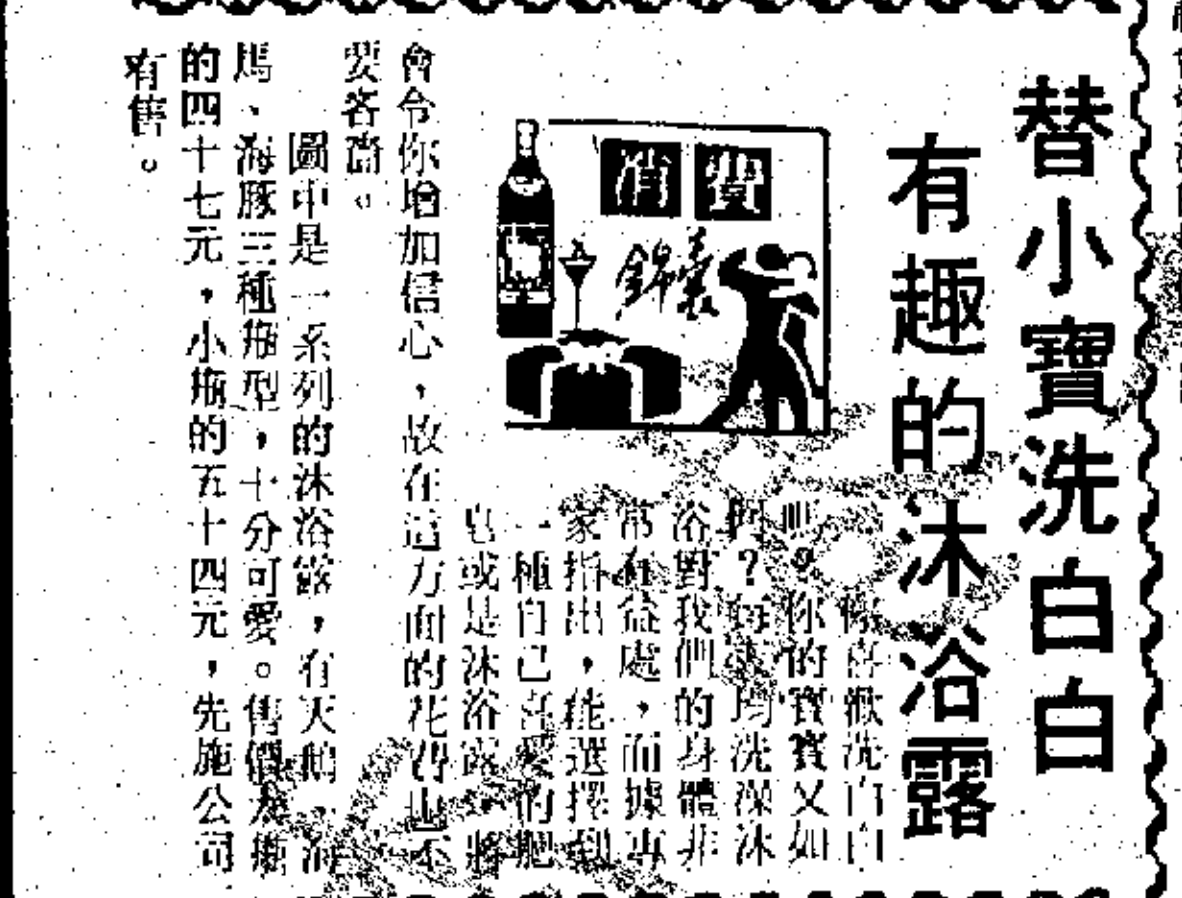 替小寶洗白白
有趣的沐浴露
消費
錦囊
你喜歡洗白白
嗎？你的寶寶又如
何？每天均洗澡沐
浴對我們的身體非
常有益處，而據專
家指出，能選擇到
一種自己喜愛的肥
皂或是沐浴露，將
會令你增加信心，故在這方面的花費也不
要吝嗇。
圖中是一系列的沐浴露，有天鵝、海
馬、海豚三種瓶型，十分可愛。售價大瓶
的四十七元，小瓶的五十四元，先施公司
有售。